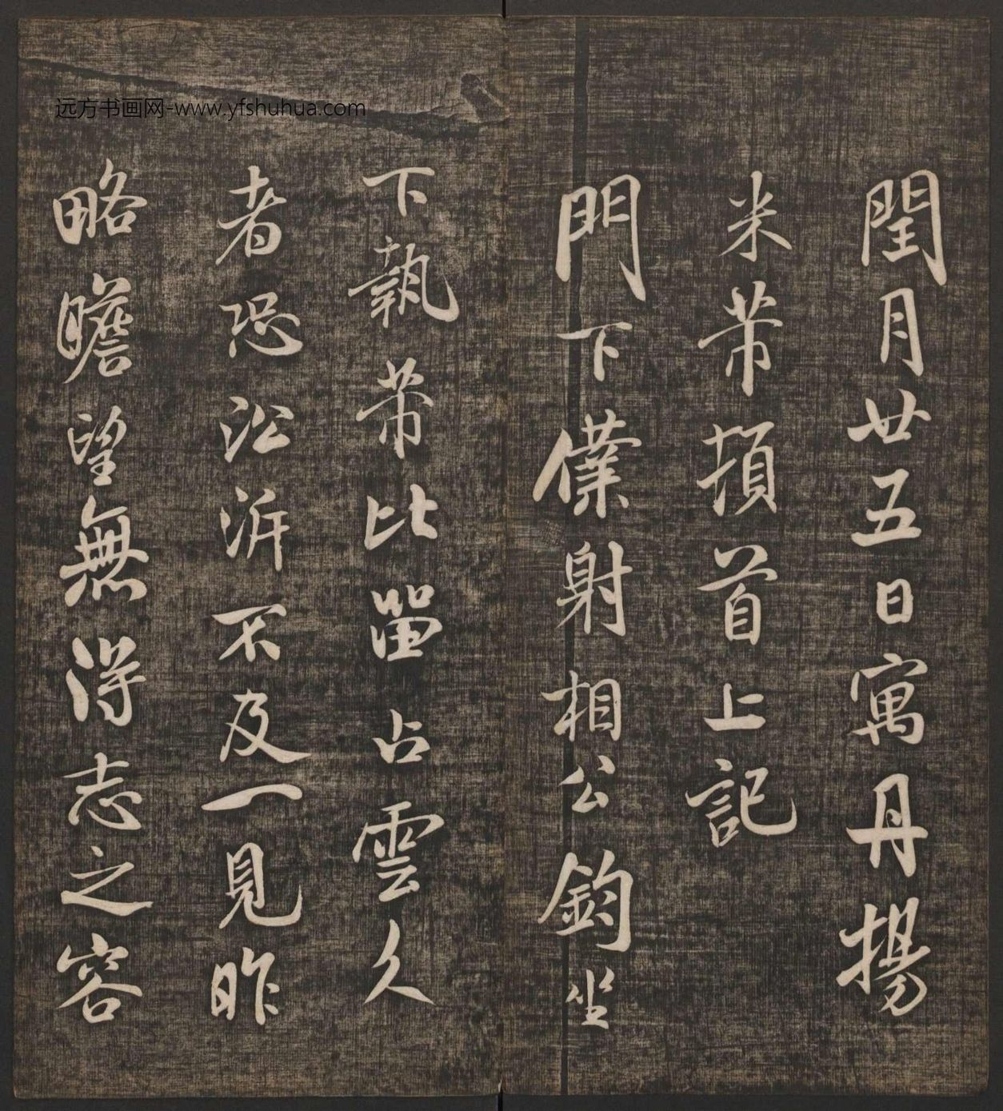 远方书画网-www.yfshuhua.com
閏月廿五日寓丹楊
米芾頓首上記
門下僕射相公鈞坐
下執芾比留占雲久
者恐沿泝不及一見昨
略瞻望無淂志之容